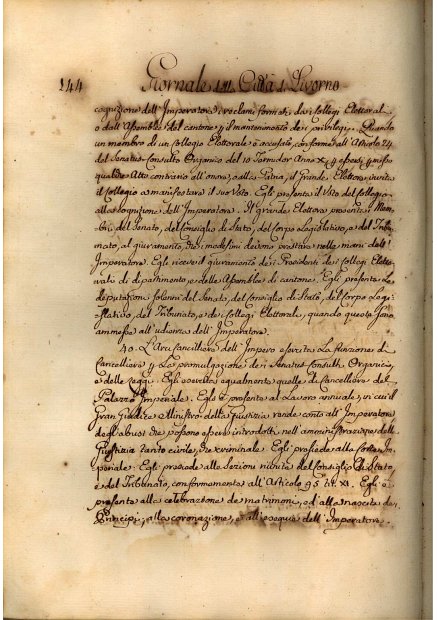 144 Giornale della Città di Livorno
cognizione dell'Imperatore, i reclami formati dai Collegi Elettorali,
o dall'Assemblee del cantone, il mantenimento dei privilegi. Quando
un membro di un Collegio Elettorale è accusato, conforme all'Articolo 21
del Senatus-Consulto Organico del 10 Termidor Anno X, essersi permesso
qualche Atto contrario all'onore, o alla Patria, il Grande Elettore invita
il Collegio a manifestare il suo Voto. Egli presenta il Voto del Collegio
alla cognizione dell'Imperatore. Il grande Elettore presenta i Mem-
bri del Senato, del Consiglio di Stato, del Corpo Legislativo, e del Tribu-
nato, al giuramento, che i medesimi devono prestare nelle mani dell'
Imperatore. Egli riceve il giuramento dei Presidenti dei Collegi Eletto-
rali di dipartimento, e delle Assemblee di cantone. Egli presenta le
deputazioni solenni del Senato, del Consiglio di Stato, del Corpo Legi-
slativo, del Tribunato, e dei Collegi Elettorali, quando queste sono
ammesse all'udienza dell'Imperatore.
40. L'Arci-cancelliere dell'Impero esercita le funzioni di
Cancelliere per la promulgazione dei Senatus-Consulti Organici,
e delle Leggi. Egli esercita egualmente quelle di Cancelliere del
Palazzo Imperiale. Egli è presente al Lavoro annuale, in cui il
Gran Giudice Ministro della Giustizia rende conto all'Imperatore
degli abusi che possono essersi introdotti nell'amministrazione della
Giustizia tanto civile, che criminale. Egli presiede alla Corte Im-
periale. Egli presiede alle Sezioni riunite del Consiglio di Stato,
e del Tribunato, conformemente all'Articolo 95 tit. XI. Egli è
presente alla celebrazione de' matrimoni, ed alla nascita de'
Principi; alla coronazione, e all'esequie dell'Imperatore.